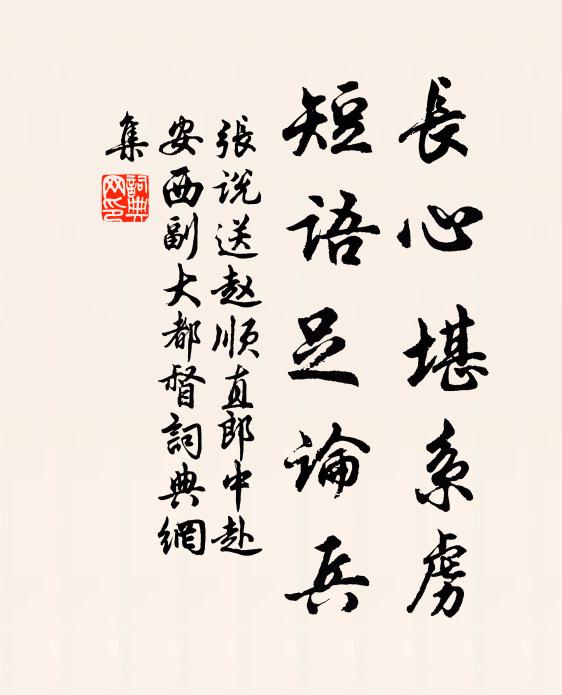 長心堪系虜
短語足論兵
張说送赵顺直郎中赴
安西副大都督詞典網
集
詞典
网印